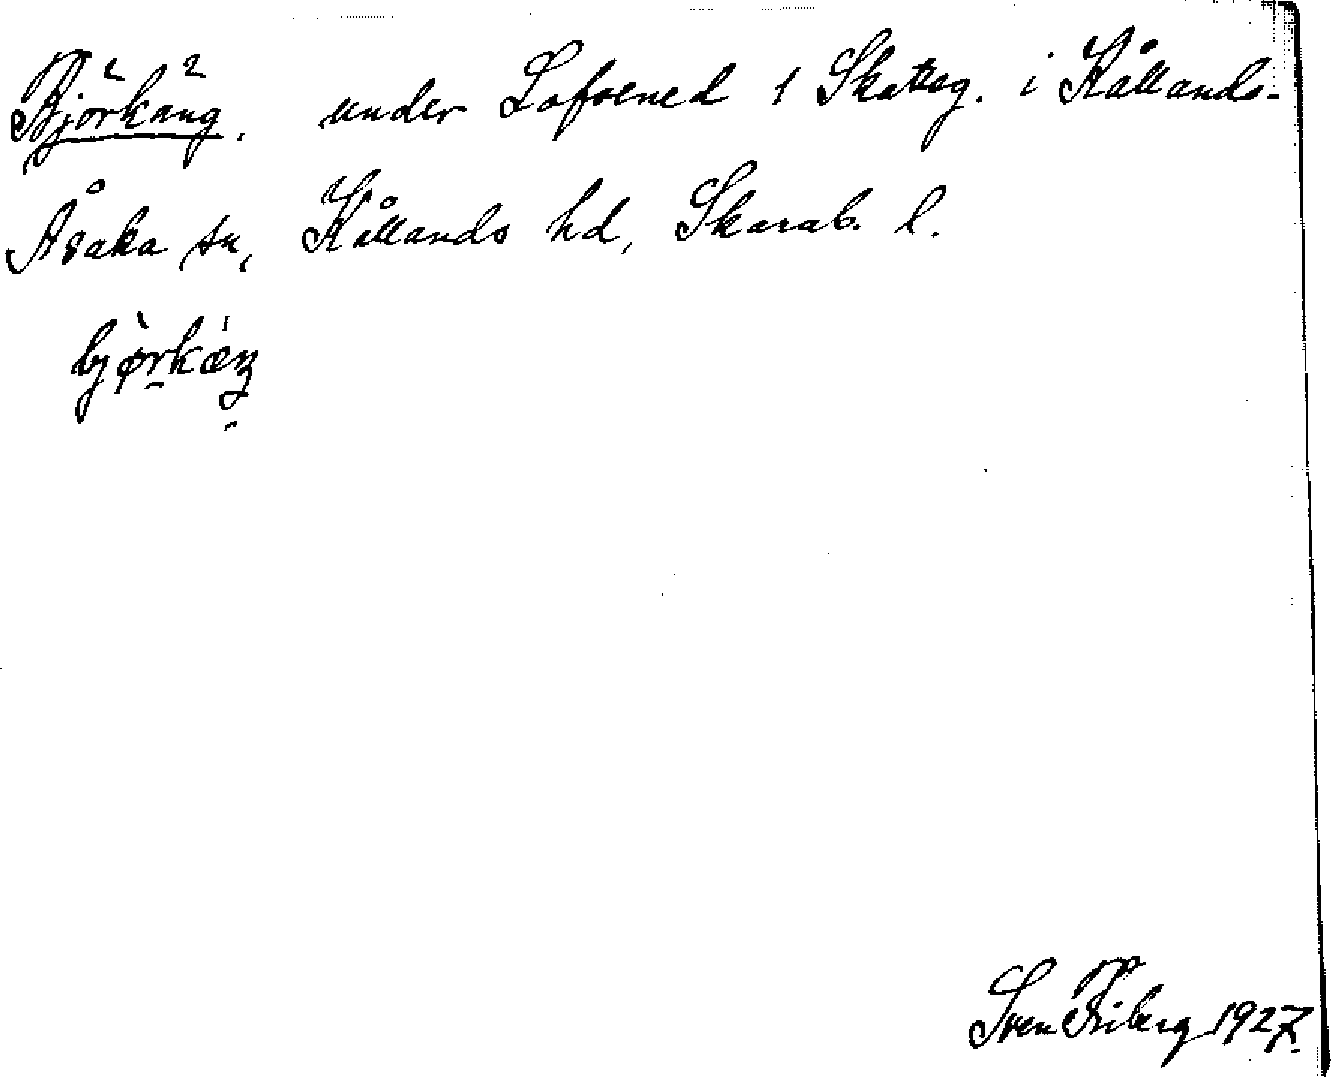 Björkäng. under Lofvened 1 Skatteg. i Kållands-
Åsaka sn, Kållands hd, Skarab. l.
bjørkæŋ
Sven Friberg 1927.